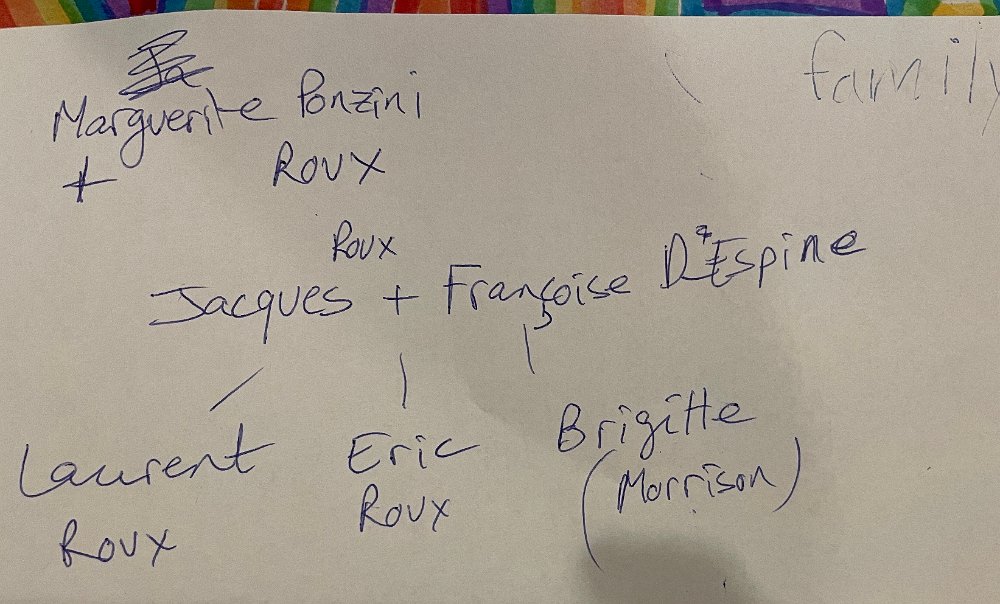 family
Marguerite Ponzini
+ Roux
Roux
Jacques + Françoise D'Espine
Laurent Eric Brigitte
Roux Roux (Morrison)